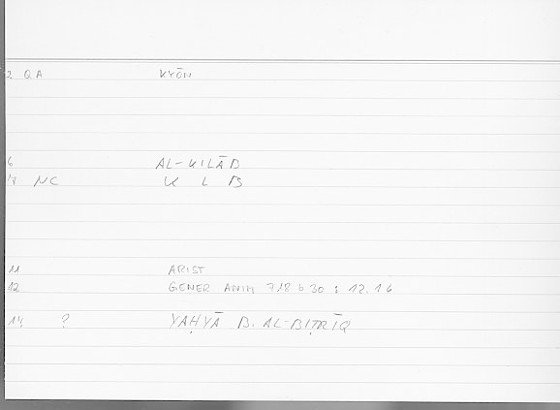 2 QA KYŌN
6 AL-KILĀB
7 NC K L B
11 ARIST
12 GENER ANIM 718 b 30 : 12.16
14 ? YAḤYĀ B. AL-BIṬRĪQ